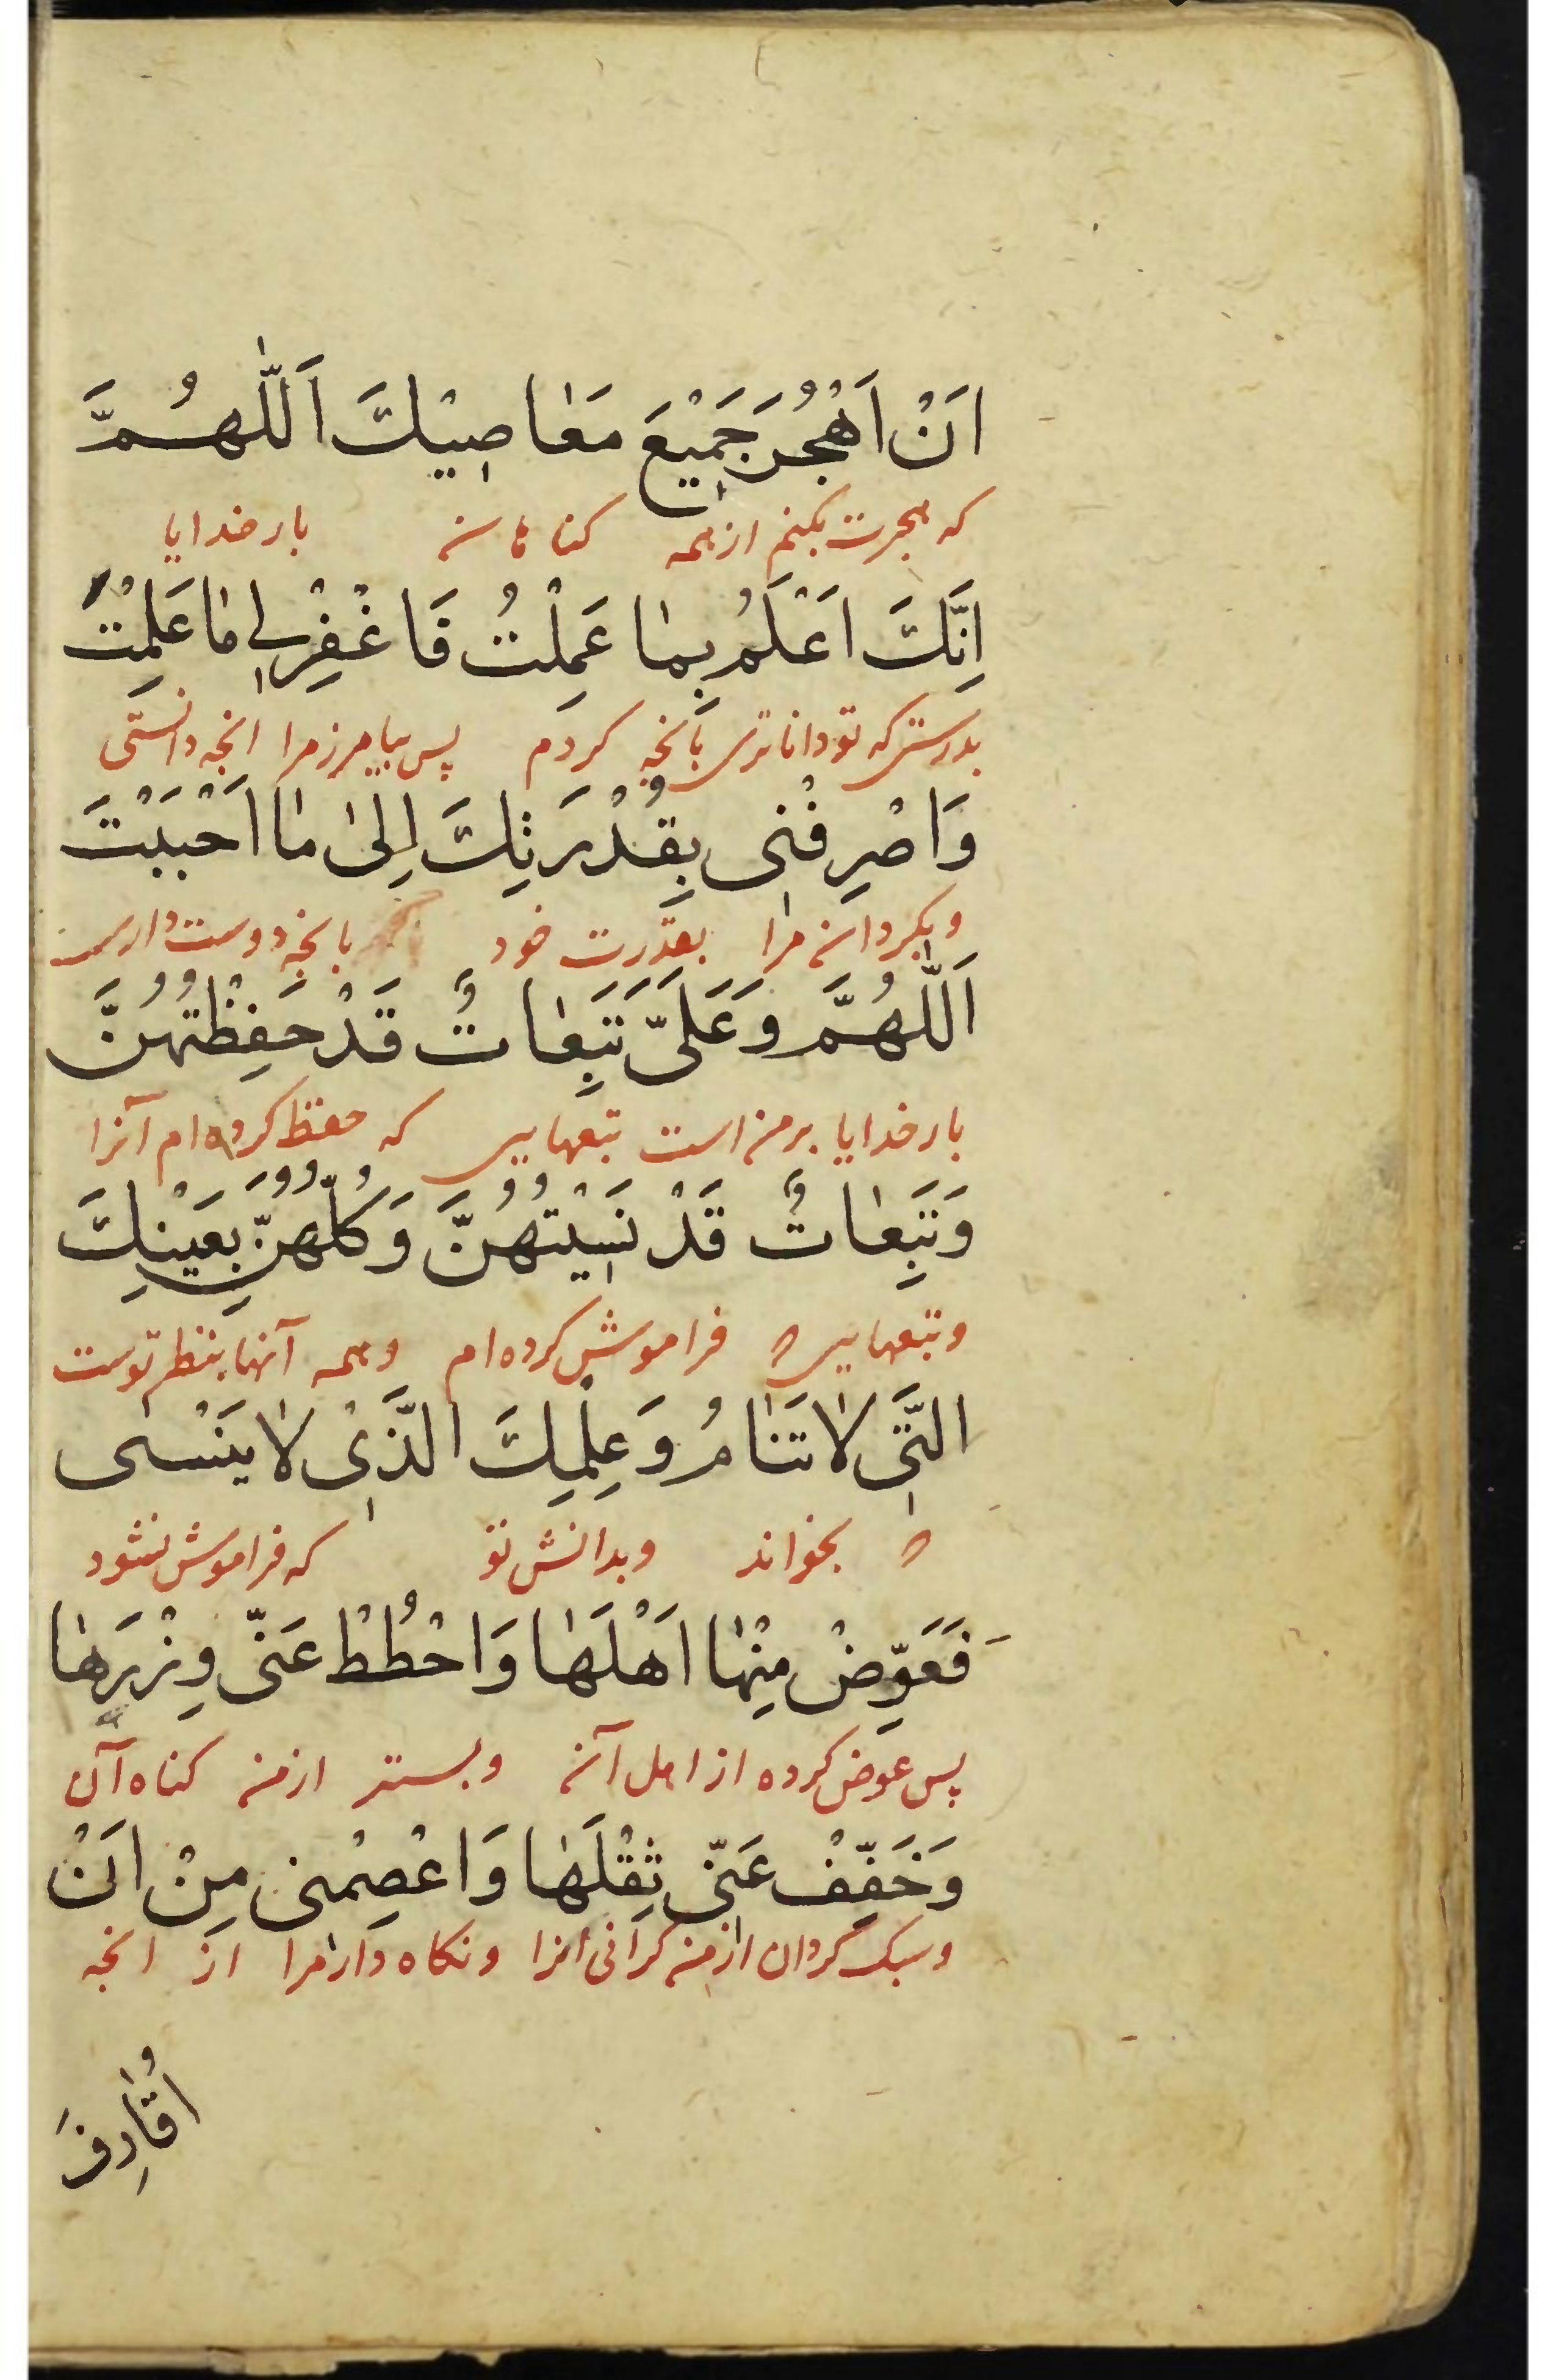 اَنْ اَهْجُرَ جَمِيْعَ مَعٰاصِيْكَ اَللّٰهُمَّ
که هجرت بکنم از همه کناهانـ بار خدایا
اِنَّكَ اَعْلَمُ بِمٰا عَمِلْتُ فَاغْفِرْلِي مٰا عَلِمْتَ
بدرستی که تو داناتری بآنچه کردم پس بیامرز مرا انچه دانستی
وَاصْرِفْنِی بِقُدْرَتِكَ اِلىٰ مٰا اَحْبَبْتَ
و بکردان مرا بقدرت خود بانچه دوست داری
اَللّٰهُمَّ وَعَلَىَّ تَبِعٰاتٌ قَدْ حَفِظْتُهُنَّ
بار خدایا بر من است تبعهایی که حفظ کرده ام آنرا
وَتَبِعٰاتٌ قَدْ نَسِيْتُهُنَّ وَكُلُّهُنَّ بِعَيْنِكَ
و تبعهایی فراموش کرده ام و همه آنها بنظر توست
الَّتِی لٰا تَنٰامُ وَعِلْمِكَ الَّذِیْ لٰا يَنْسىٰ
بخواند و بدانش تو که فراموش نشود
فَعَوِّضْ مِنْهٰا اَهْلَهٰا وَاحْطُطْ عَنّی وِزْرَهٰا
پس عوض کرده از اهل آن و بستر از من کناه آن
وَخَفِّفْ عَنّی ثِقْلَهٰا وَاعْصِمْنی مِنْ اَنْ
و سبک کردان از من کرانی انرا و نکاه دار مرا از انچه
اُقٰارِفَ